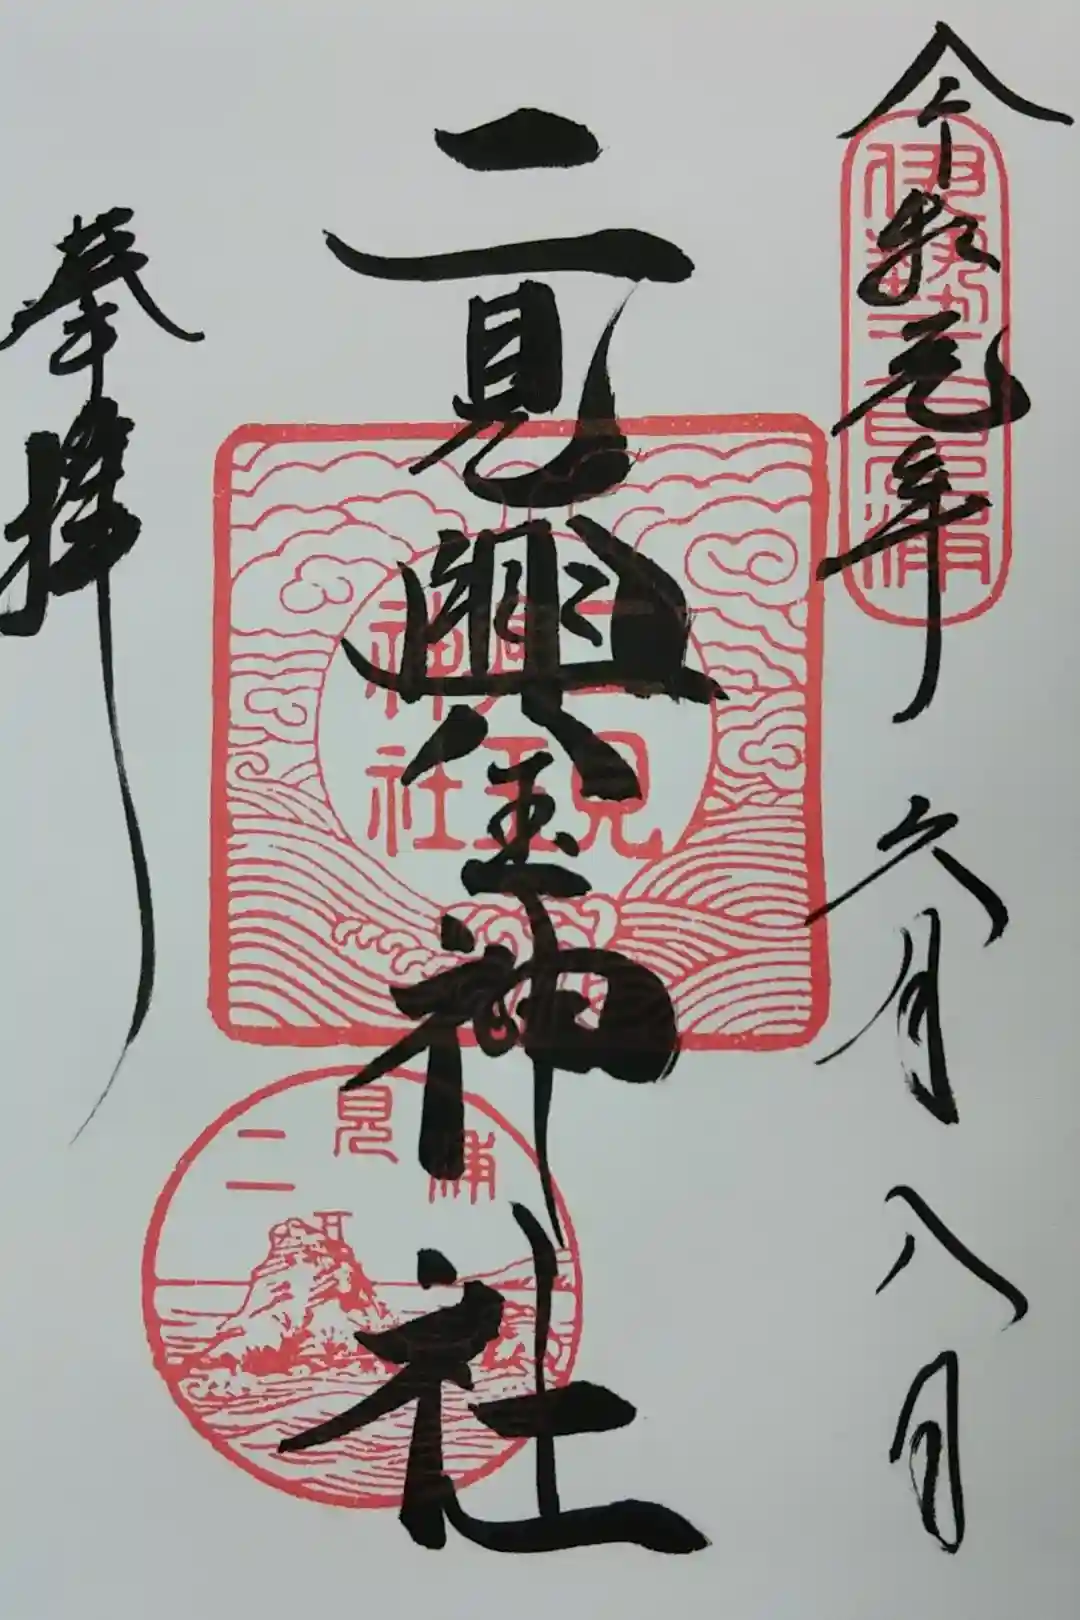 令和元年 六月 八日
伊勢二見浦
二見興玉神社
二見
興玉
神社
二見浦
奉拝